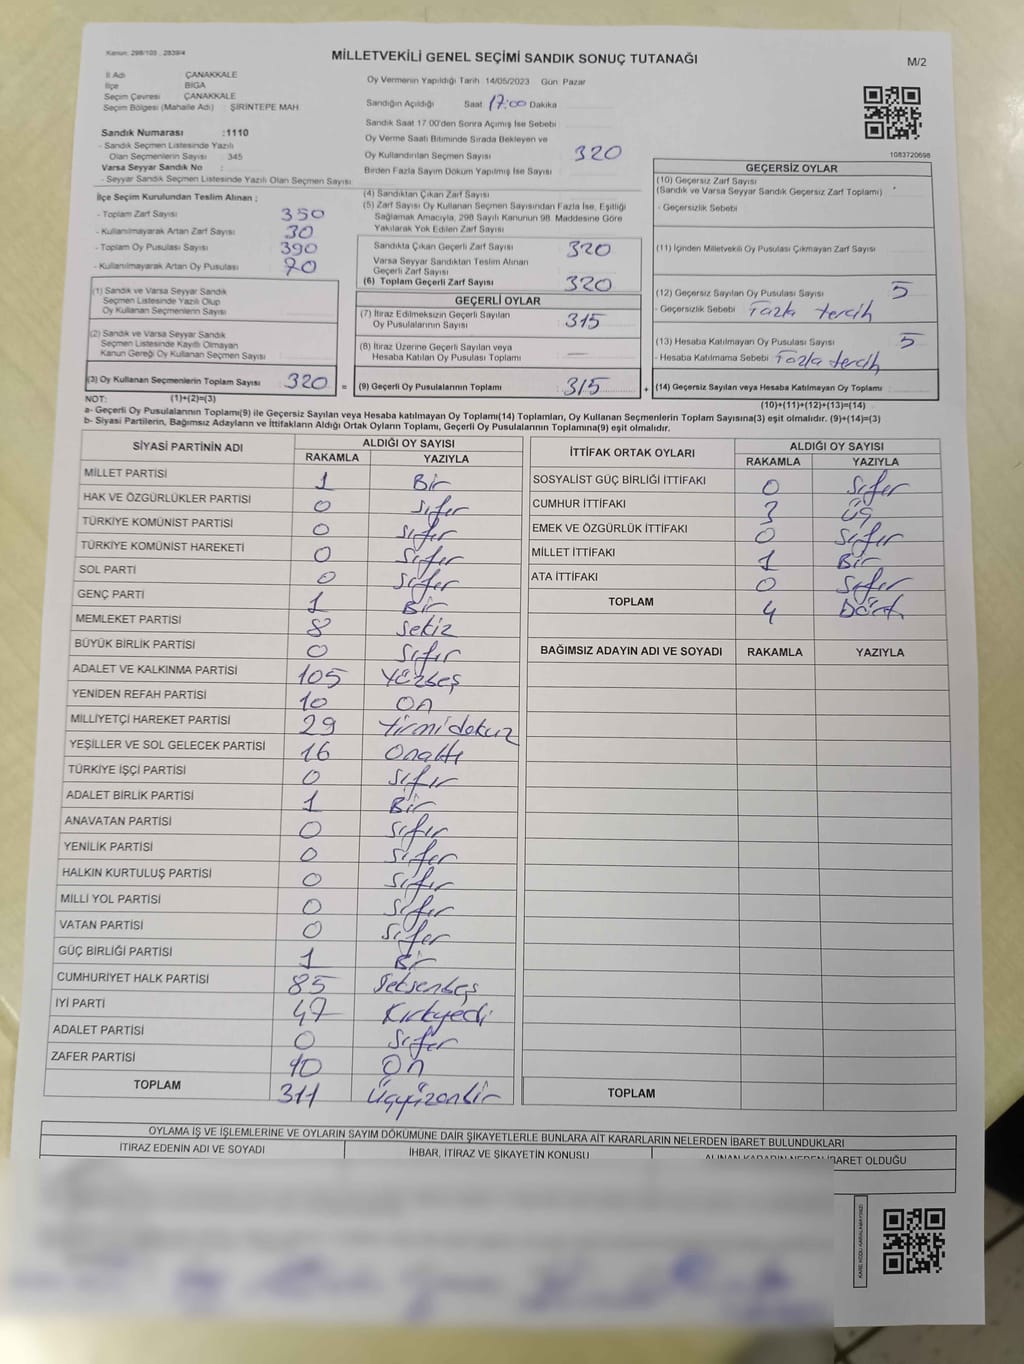 Kanun: 298/103 , 2839/4
MİLLETVEKİLİ GENEL SEÇİMİ SANDIK SONUÇ TUTANAĞI
M/2
İl Adı ÇANAKKALE
İlçe BİGA
Seçim Çevresi ÇANAKKALE
Seçim Bölgesi (Mahalle Adı) ŞİRİNTEPE MAH.
Sandık Numarası :1110
- Sandık Seçmen Listesinde Yazılı
Olan Seçmenlerin Sayısı : 345
Varsa Seyyar Sandık No :
- Seyyar Sandık Seçmen Listesinde Yazılı Olan Seçmen Sayısı
Oy Vermenin Yapıldığı Tarih 14/05/2023 Gün Pazar
Sandığın Açıldığı Saat 17:00 Dakika
Sandık Saat 17.00'den Sonra Açılmış İse Sebebi
Oy Verme Saati Bitiminde Sırada Bekleyen ve
Oy Kullandırılan Seçmen Sayısı 320
Birden Fazla Sayım Döküm Yapılmış İse Sayısı
1083720698
İlçe Seçim Kurulundan Teslim Alınan ;
- Toplam Zarf Sayısı 350
- Kullanılmayarak Artan Zarf Sayısı 30
- Toplam Oy Pusulası Sayısı 390
- Kullanılmayarak Artan Oy Pusulası 70
(1) Sandık ve Varsa Seyyar Sandık
Seçmen Listesinde Yazılı Olup
Oy Kullanan Seçmenlerin Sayısı
(2) Sandık ve Varsa Seyyar Sandık
Seçmen Listesinde Kayıtlı Olmayan
Kanun Gereği Oy Kullanan Seçmen Sayısı
(3) Oy Kullanan Seçmenlerin Toplam Sayısı 320 =
(4) Sandıktan Çıkan Zarf Sayısı
(5) Zarf Sayısı Oy Kullanan Seçmen Sayısından Fazla İse, Eşitliği
Sağlamak Amacıyla, 298 Sayılı Kanunun 98. Maddesine Göre
Yakılarak Yok Edilen Zarf Sayısı
Sandıkta Çıkan Geçerli Zarf Sayısı 320
Varsa Seyyar Sandıktan Teslim Alınan
Geçerli Zarf Sayısı
(6) Toplam Geçerli Zarf Sayısı 320
GEÇERLİ OYLAR
(7) İtiraz Edilmeksizin Geçerli Sayılan
Oy Pusulalarının Sayısı 315
(8) İtiraz Üzerine Geçerli Sayılan veya
Hesaba Katılan Oy Pusulası Toplamı —
(9) Geçerli Oy Pusulalarının Toplamı 315 +
GEÇERSİZ OYLAR
(10) Geçersiz Zarf Sayısı
(Sandık ve Varsa Seyyar Sandık Geçersiz Zarf Toplamı)
- Geçersizlik Sebebi
(11) İçinden Milletvekili Oy Pusulası Çıkmayan Zarf Sayısı
(12) Geçersiz Sayılan Oy Pusulası Sayısı 5
- Geçersizlik Sebebi Fazla tercih
(13) Hesaba Katılmayan Oy Pusulası Sayısı 5
- Hesaba Katılmama Sebebi Fazla tercih
(14) Geçersiz Sayılan veya Hesaba Katılmayan Oy Toplamı
NOT: (1)+(2)=(3)
(10)+(11)+(12)+(13)=(14)
a- Geçerli Oy Pusulalarının Toplamı(9) ile Geçersiz Sayılan veya Hesaba katılmayan Oy Toplamı(14) Toplamları, Oy Kullanan Seçmenlerin Toplam Sayısına(3) eşit olmalıdır. (9)+(14)=(3)
b- Siyasi Partilerin, Bağımsız Adayların ve İttifakların Aldığı Ortak Oyların Toplamı, Geçerli Oy Pusulalarının Toplamına(9) eşit olmalıdır.
SİYASİ PARTİNİN ADI
ALDIĞI OY SAYISI
RAKAMLA YAZIYLA
MİLLET PARTİSİ 1 Bir
HAK VE ÖZGÜRLÜKLER PARTİSİ 0 Sıfır
TÜRKİYE KOMÜNİST PARTİSİ 0 Sıfır
TÜRKİYE KOMÜNİST HAREKETİ 0 Sıfır
SOL PARTİ 0 Sıfır
GENÇ PARTİ 1 Bir
MEMLEKET PARTİSİ 8 Sekiz
BÜYÜK BİRLİK PARTİSİ 0 Sıfır
ADALET VE KALKINMA PARTİSİ 105 Yüzbeş
YENİDEN REFAH PARTİSİ 10 On
MİLLİYETÇİ HAREKET PARTİSİ 29 Yirmidokuz
YEŞİLLER VE SOL GELECEK PARTİSİ 16 Onaltı
TÜRKİYE İŞÇİ PARTİSİ 0 Sıfır
ADALET BİRLİK PARTİSİ 1 Bir
ANAVATAN PARTİSİ 0 Sıfır
YENİLİK PARTİSİ 0 Sıfır
HALKIN KURTULUŞ PARTİSİ 0 Sıfır
MİLLİ YOL PARTİSİ 0 Sıfır
VATAN PARTİSİ 0 Sıfır
GÜÇ BİRLİĞİ PARTİSİ 1 Bir
CUMHURİYET HALK PARTİSİ 85 Seksenbeş
İYİ PARTİ 47 Kırkyedi
ADALET PARTİSİ 0 Sıfır
ZAFER PARTİSİ 10 On
TOPLAM 311 Üçyüzonbir
İTTİFAK ORTAK OYLARI
ALDIĞI OY SAYISI
RAKAMLA YAZIYLA
SOSYALİST GÜÇ BİRLİĞİ İTTİFAKI 0 Sıfır
CUMHUR İTTİFAKI 3 Üç
EMEK VE ÖZGÜRLÜK İTTİFAKI 0 Sıfır
MİLLET İTTİFAKI 1 Bir
ATA İTTİFAKI 0 Sıfır
TOPLAM 4 Dört
BAĞIMSIZ ADAYIN ADI VE SOYADI RAKAMLA YAZIYLA
TOPLAM
OYLAMA İŞ VE İŞLEMLERİNE VE OYLARIN SAYIM DÖKÜMÜNE DAİR ŞİKAYETLERLE BUNLARA AİT KARARLARIN NELERDEN İBARET BULUNDUKLARI
İTİRAZ EDENİN ADI VE SOYADI
İHBAR, İTİRAZ VE ŞİKAYETİN KONUSU
ALINAN KARARIN NEDEN İBARET OLDUĞU